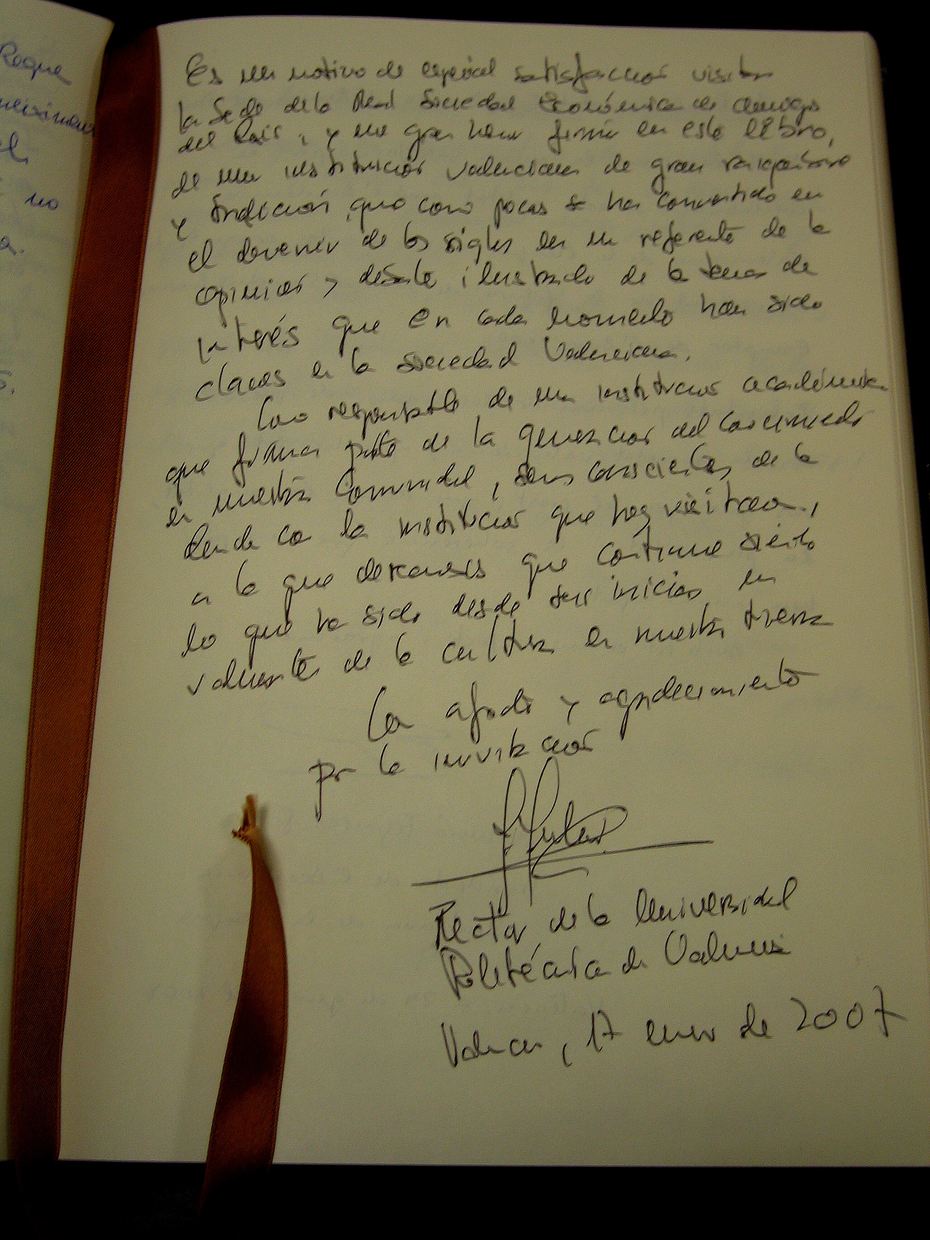 Roque
no
Es un motivo de especial satisfacción visitar
la Sede de la Real Sociedad Económica de Amigos
del País, y un gran honor firmar en este libro,
de una institución valenciana de gran
y tradición, que como pocas se ha convertido en
el devenir de los siglos en un referente de la
opinión y debate ilustrado de los temas de
interés que en cada momento han sido
claves en la sociedad Valenciana.
Como responsable de una institución académica
que forma parte de la generación del conocimiento
en nuestra Comunidad, somos conscientes de la
deuda con la institución que hoy visitamos,
a la que deseamos que continue siendo
lo que ha sido desde sus inicios un
de la cultura en nuestra tierra
Con afecto y agradecimiento
por la invitación
Rector de la Universidad
Politécnica de Valencia
Valencia, 17 enero de 2007